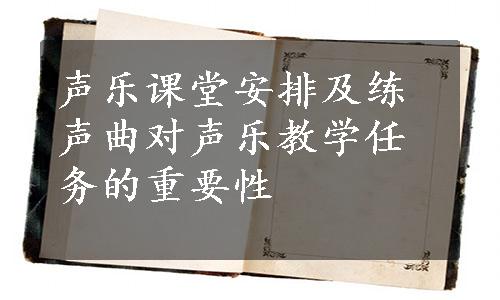 声乐课堂安排及练
声曲对声乐教学任
务的重要性